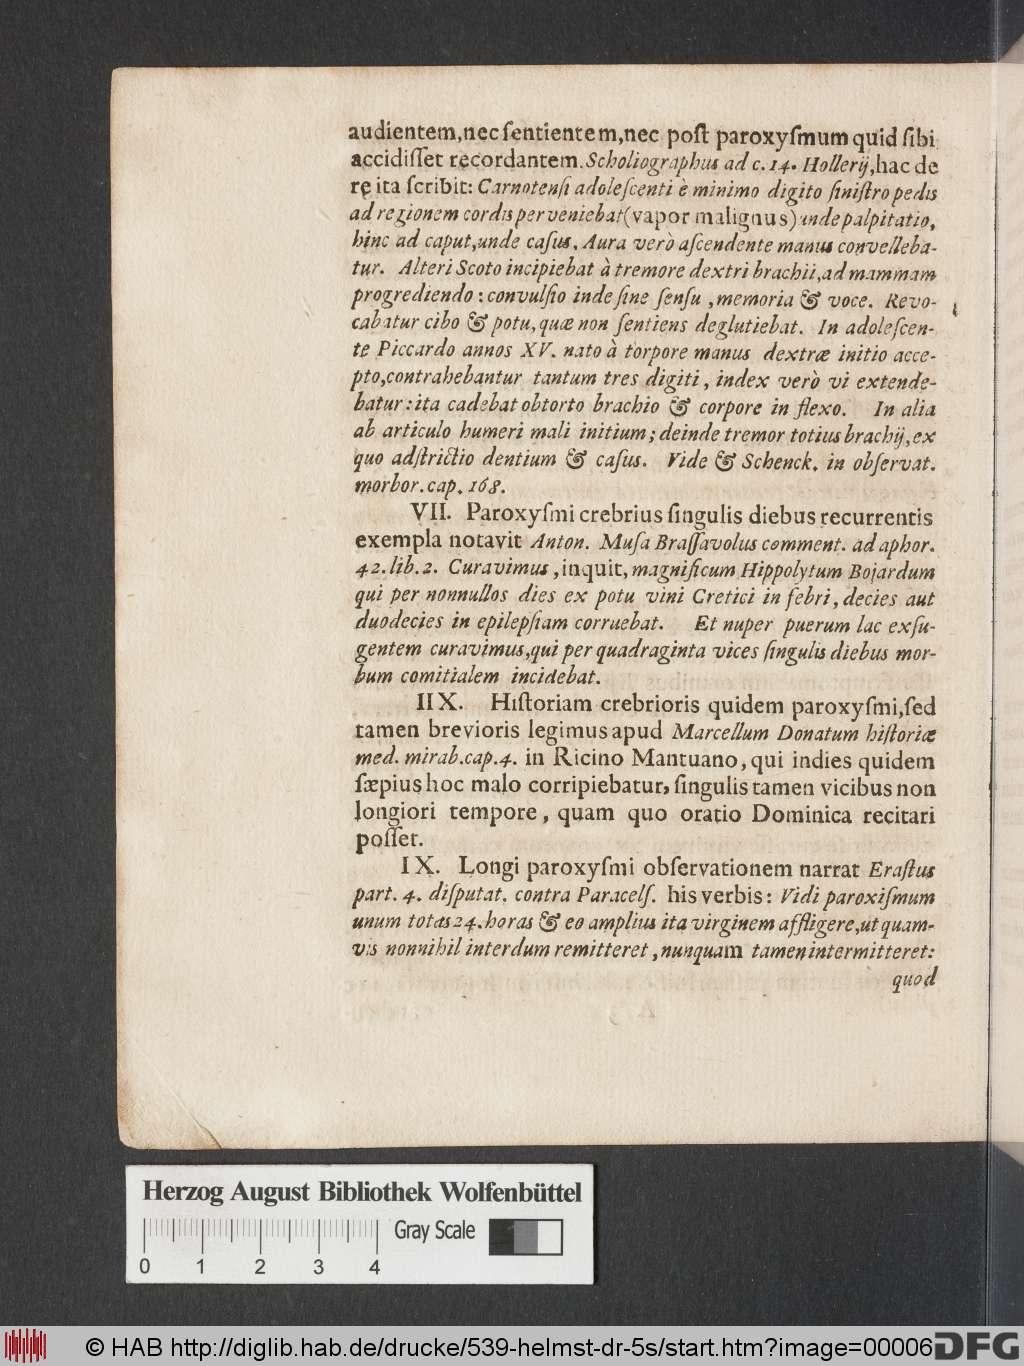 audientem,nec ſentientem,nec poſt paroxyſmum quid ſibi
accidiſſet recordantem. Scholiographus ad c. 14. Hollerij,hac de
rę ita ſcribit: Carnotenſi adoleſcenti è minimo digito ſiniſtro pedis
ad regionem cordis perveniebat(vapor malignus) unde palpitatio,
hinc ad caput,unde caſus. Aura verò aſcendente manus convelleba-
tur. Alteri Scoto incipiebat à tremore dextri brachii,ad mammam
progrediendo : convulſio inde ſine ſenſu , memoria & voce. Revo-
cabatur cibo & potu, quæ non ſentiens deglutiebat. In adoleſcen-
te Piccardo annos XV. nato à torpore manus dextræ initio acce-
pto,contrahebantur tantum tres digiti , index verò vi extende-
batur : ita cadebat obtorto brachio & corpore in flexo. In alia
ab articulo humeri mali initium ; deinde tremor totius brachij, ex
quo adſtrictio dentium & caſus. Vide & Schenck. in obſervat.
morbor. cap. 168.
VII. Paroxyſmi crebrius ſingulis diebus recurrentis
exempla notavit Anton. Muſa Braſſavolus comment. ad aphor.
42. lib. 2. Curavimus , inquit, magnificum Hippolytum Bojardum
qui per nonnullos dies ex potu vini Cretici in febri, decies aut
duodecies in epilepſiam corruebat. Et nuper puerum lac exſu-
gentem curavimus,qui per quadraginta vices ſingulis diebus mor-
bum comitialem incidebat.
IIX. Hiſtoriam crebrioris quidem paroxyſmi,ſed
tamen brevioris legimus apud Marcellum Donatum hiſtoriæ
med. mirab. cap. 4. in Ricino Mantuano, qui indies quidem
ſæpius hoc malo corripiebatur, ſingulis tamen vicibus non
longiori tempore , quam quo oratio Dominica recitari
poſſet.
IX. Longi paroxyſmi obſervationem narrat Eraſtus
part. 4. diſputat. contra Paracelſ. his verbis : Vidi paroxiſmum
unum totas 24. horas & eo amplius ita virginem affligere,ut quam-
vis nonnihil interdum remitteret , nunquam tamen intermitteret:
quod
Herzog August Bibliothek Wolfenbüttel
Gray Scale
0 1 2 3 4
© HAB http://diglib.hab.de/drucke/539-helmst-dr-5s/start.htm?image=00006
DFG